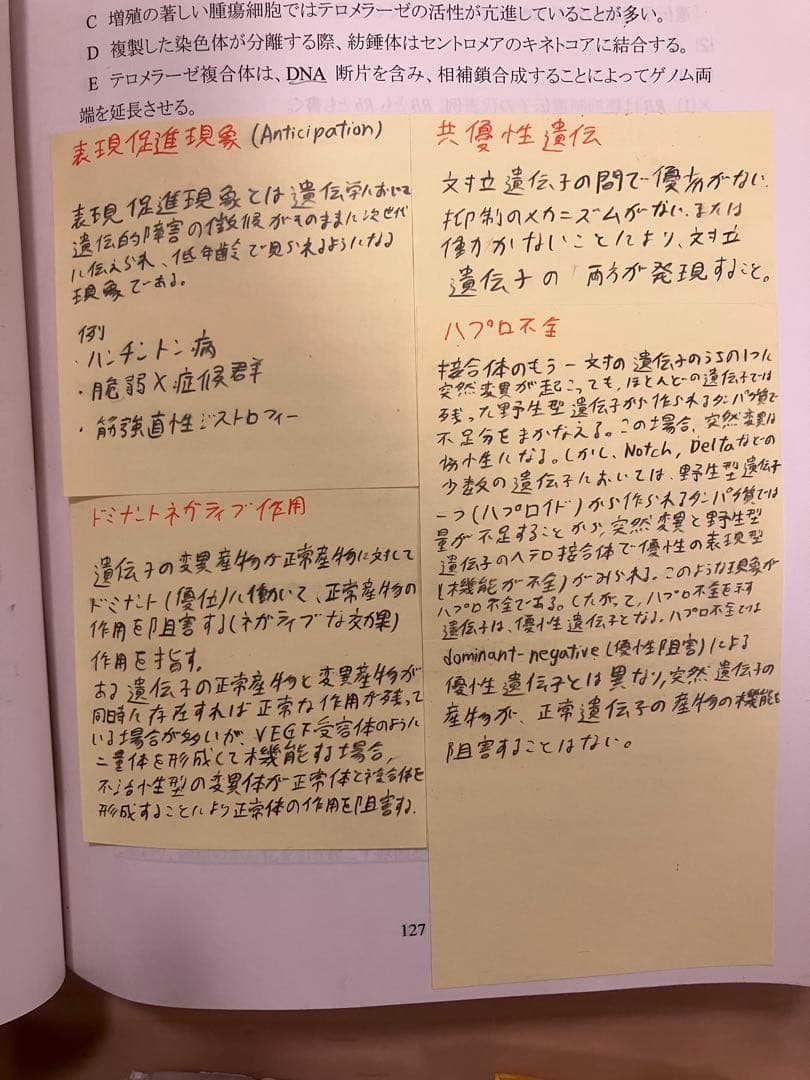 C 増殖の著しい腫瘍細胞ではテロメラーゼの活性が亢進していることが多い。
D 複製した染色体が分離する際、紡錘体はセントロメアのキネトコアに結合する。
E テロメラーゼ複合体は、DNA 断片を含み、相補鎖合成することによってゲノム両
端を延長させる。
表現促進現象(Anticipation)
表現促進現象とは遺伝学において
遺伝的障害の徴候がそのままに次世代
に伝えられ、低年齢で見られるようになる
現象である。
例
・ハンチントン病
・脆弱X症候群
・筋強直性ジストロフィー
ドミナントネガティブ作用
遺伝子の変異産物が正常産物に対して
ドミナント(優位)に働いて、正常産物の
作用を阻害する(ネガティブな効果)
作用を指す。
ある遺伝子の正常産物と変異産物が
同時に存在すれば正常な作用が残って
いる場合が多いが、VEGF受容体のように
二量体を形成して機能する場合、
不活性型の変異体が正常体と複合体を
形成することにより正常体の作用を阻害する.
共優性遺伝
対立遺伝子の間で優劣がない.
抑制のメカニズムがない.または
働かないことにより、対立
遺伝子の両方が発現すること。
ハプロ不全
接合体のもう一対の遺伝子のうちの1つに
突然変異が起こっても、ほとんどの遺伝子では
残った野生型遺伝子から作られるタンパク質で
不足分をまかなえる。この場合、突然変異は
劣性になる。しかし、Notch, Deltaなどの
少数の遺伝子においては、野生型遺伝子
一つ(ハプロイド)から作られるタンパク質では
量が不足することから、突然変異と野生型
遺伝子のヘテロ接合体で優性の表現型
(機能が不全)がみられる。このような現象が
ハプロ不全である。したがって、ハプロ不全を示す
遺伝子は、優性遺伝子となる。ハプロ不全では
dominant-negative(優性阻害)による
優性遺伝子とは異なり、突然遺伝子の
産物が、正常遺伝子の産物の機能を
阻害することはない。
127